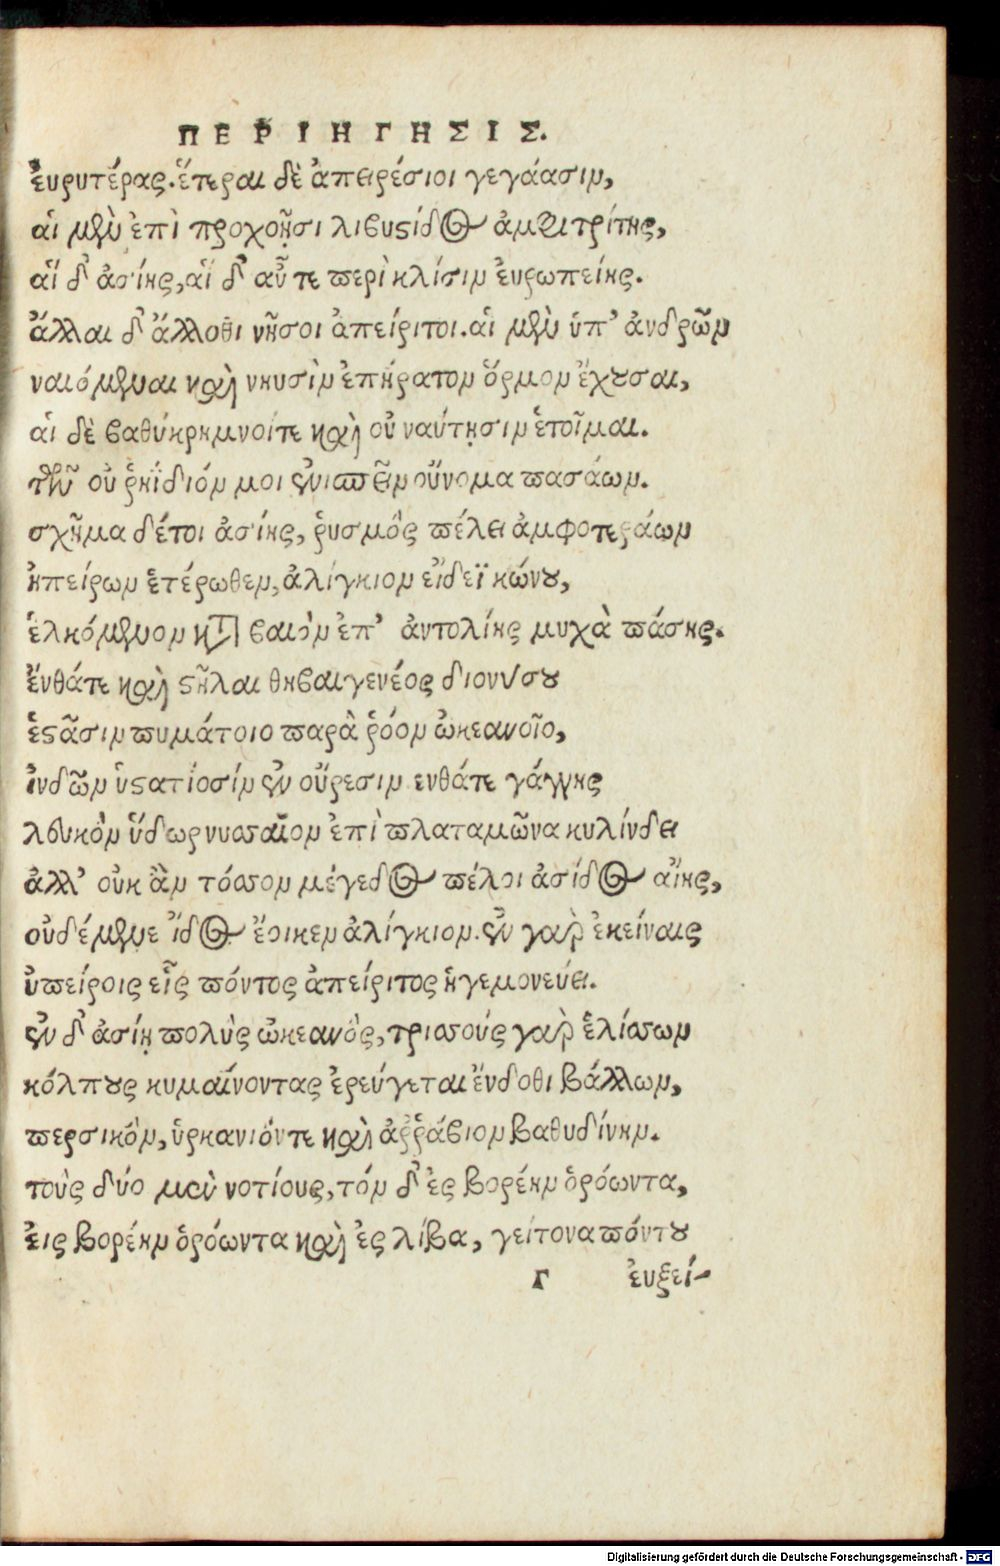 ΠΕΡΙΗΓΗΣΙΣ.
ἐυρυτέρας. ἕτεραι δὲ ἀπειρέσιοι γεγάασιν,
αἱ μὲν ἐπὶ προχοῇσι λιβυστίδος ἀμφιτρίτης,
αἱ δ' ἀσίης, αἱ δ' αὖτε περὶ κλίσιν ἐυρωπείης.
ἄλλαι δ' ἄλλοθι νῆσοι ἀπείριτοι. αἱ μὲν ὑπ' ἀνδρῶν
ναιόμεναι καὶ νηυσὶν ἐπήρατον ὅρμον ἔχουσαι,
αἱ δὲ βαθύκρημνοίτε καὶ οὐ ναύτῃσιν ἑτοῖμαι.
τῶν οὐ ῥηΐδιόν μοι ἐνισπεῖν οὔνομα πασάων.
σχῆμα δέτοι ἀσίης, ῥυσμὸς πέλει ἀμφοτεράων
ἠπείρων ἑτέρωθεν, ἀλίγκιον εἴδεϊ κώνου,
ἑλκόμενον κατὰ βαιὸν ἐπ' ἀντολίης μυχὰ πάσης.
ἔνθάτε καὶ στῆλαι θηβαιγενέος διονύσου
ἑστᾶσιν πυμάτοιο παρὰ ῥόον ὠκεανοῖο,
ἰνδῶν ὑστατίοσίν ἐν οὔρεσιν ενθάτε γάγγης
λευκὸν ὕδωρ νυσσαῖον ἐπὶ πλαταμῶνα κυλίνδει
ἀλλ' οὐκ ἂν τόσσον μέγεδος πέλοι ἀσίδος αἴης,
οὐδέμενε ἶδος ἔοικεν ἀλίγκιον. ἐν γὰρ ἐκείναις
ὑπείροις εἷς πόντος ἀπείριτος ἡγεμονεύει.
ἐν δ' ἀσίῃ πολὺς ὠκεανὸς, τρισσούς γὰρ ἑλίσσων
κόλπους κυμαίνοντας ἐρεύγεται ἔνδοθι βάλλων,
περσικὸν, ὑρκανιόντε καὶ ἀῤῥάβιον βαθυδίνην.
τοὺς δύο μὲν νοτίους, τόν δ' ἐς βορέην ὁρόωντα,
ἐις βορέην ὁρόωντα καὶ ἐς λίβα, γείτονα πόντου
Γ ἐυξεί-
Digitalisierung gefördert durch die Deutsche Forschungsgemeinschaft - DFG